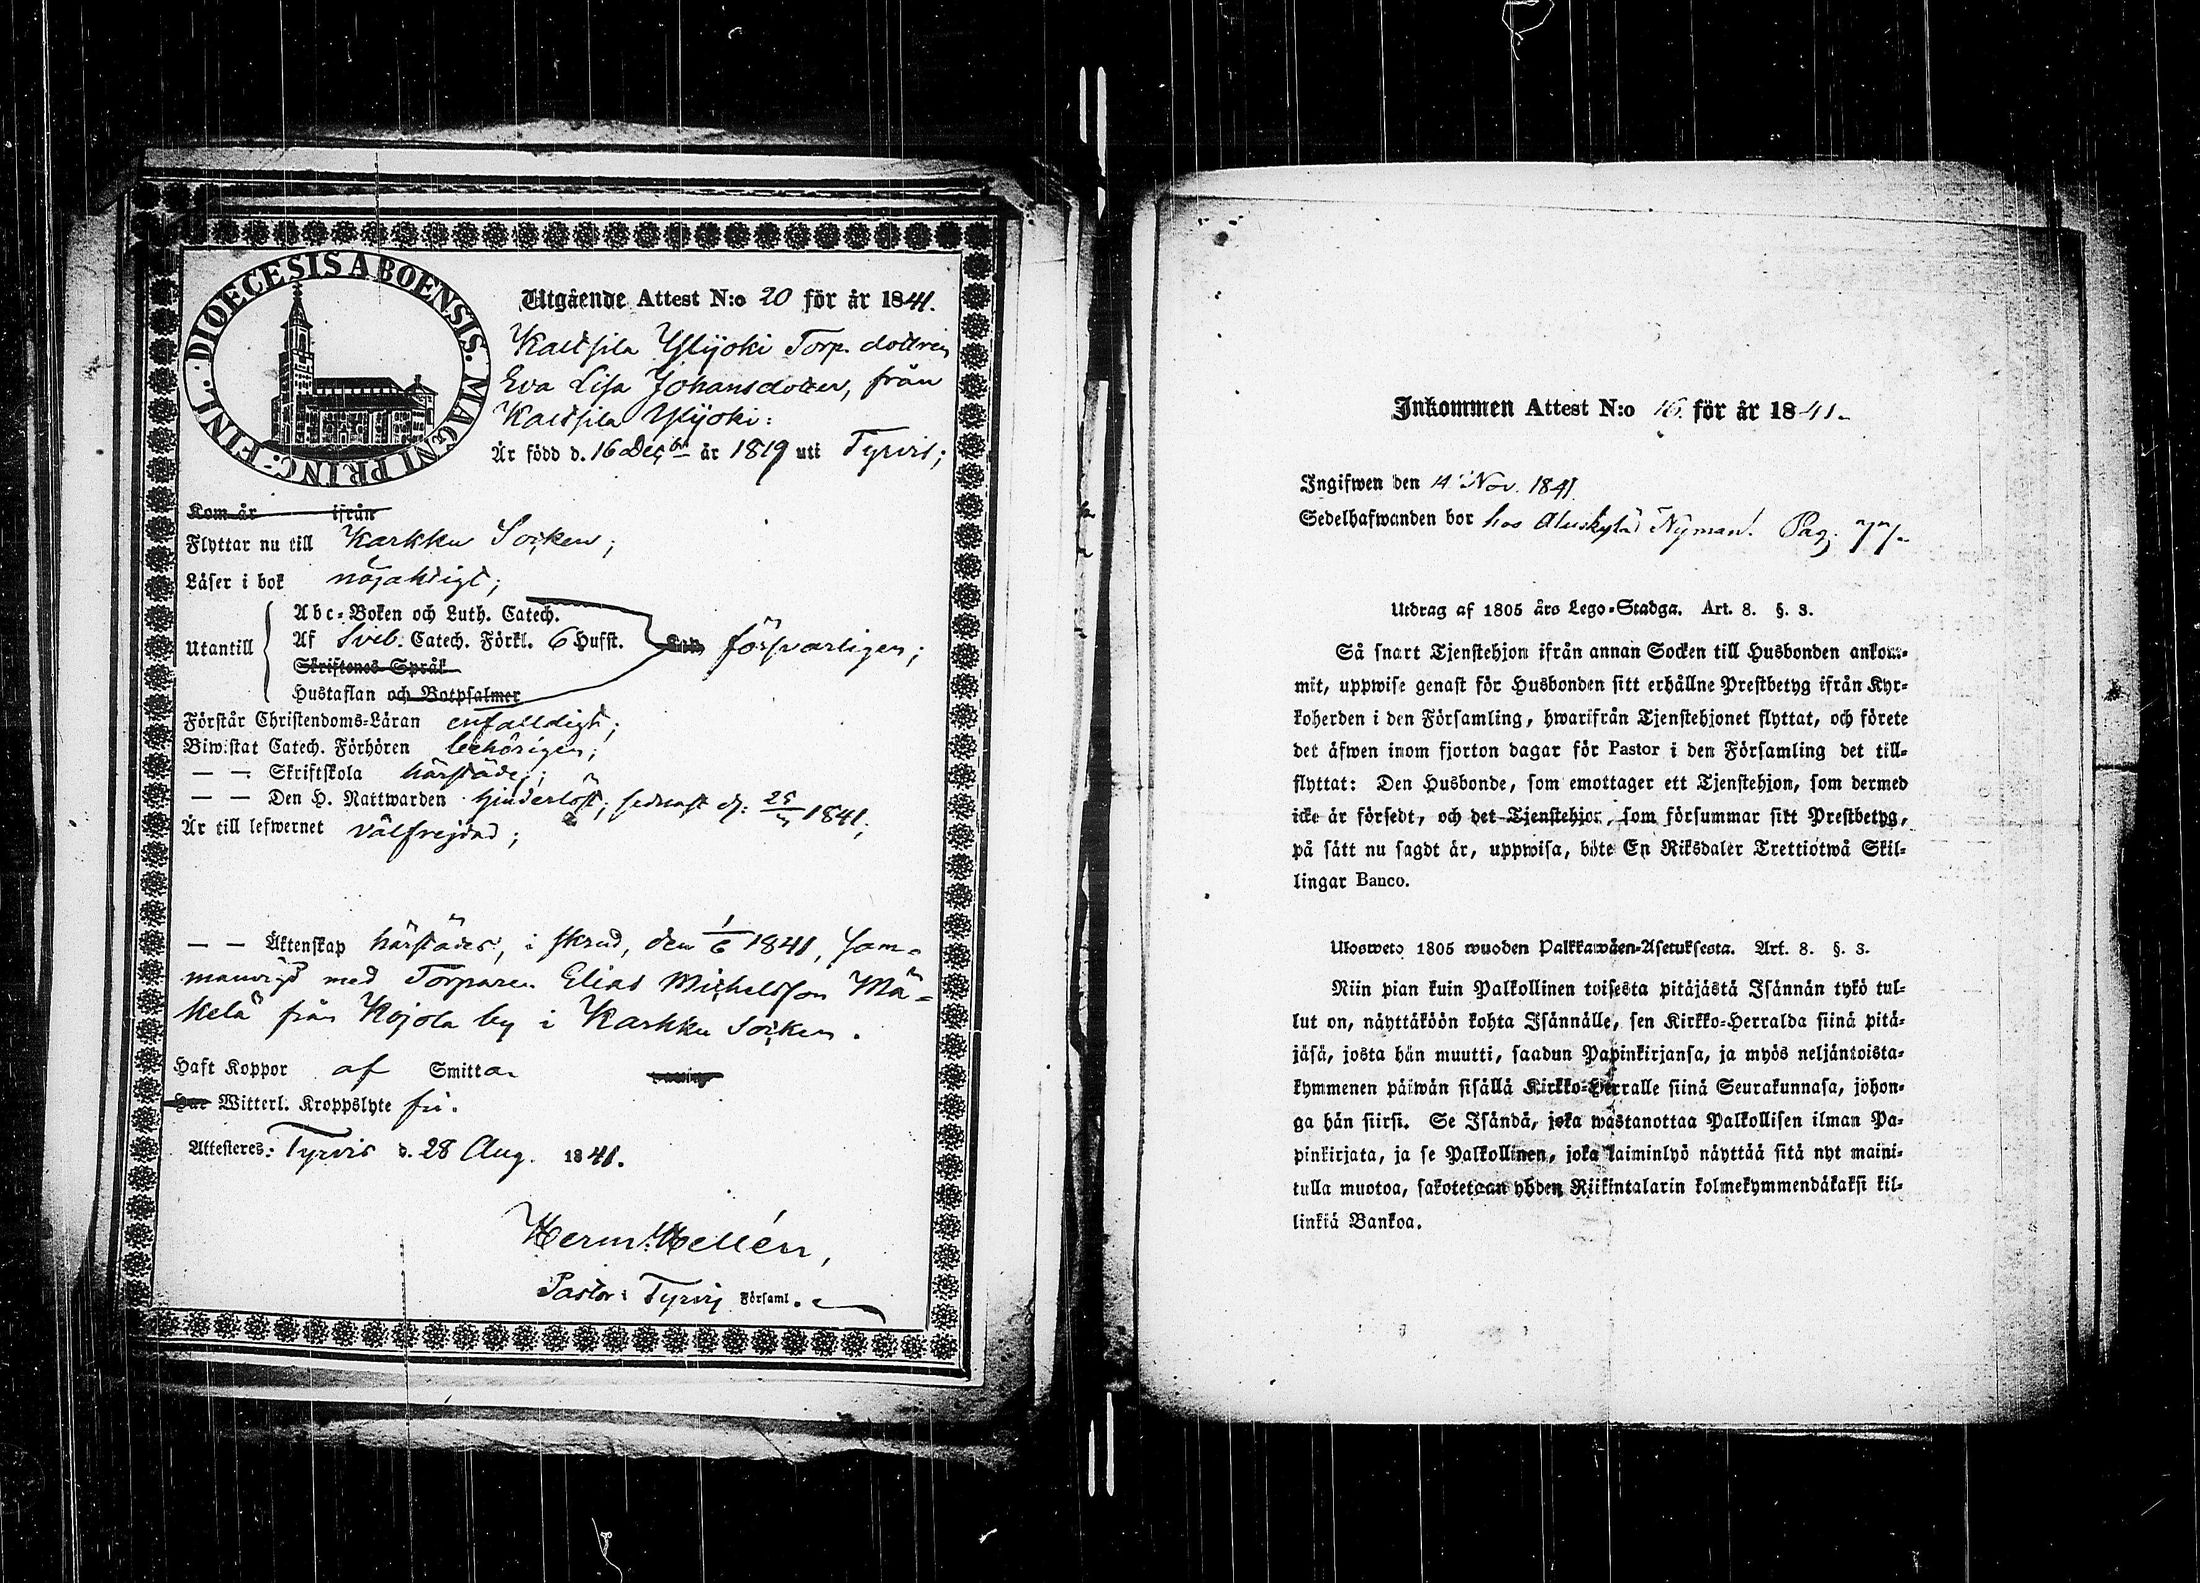 FINL. DIOECESIS ABOENSIS. MAGNI PRINC:
Utgående Attest N:o 20 för år 1841.
Kaltsila Ylijoki Torp. dottren
Eva Lisa Johansdotter, från
Kaltsila Ylijoki:
Är född d. 16 Dec:br år 1819 uti Tyrvis;
Kom år ifrån
Flyttar nu till Karkku Socken;
Läser i bok nöjaktigt;
Abc-Boken och Luth. Catech.
Utantill Af Sveb. Catech. Förkl. 6 Hufst. försvarligen;
Skriftenes Språk
Hustaflan och Botpsalmer
Förstår Christendoms-Läran enfaldigt;
Biwistat Catech. Förhören behörigen;
— — Skriftskola härstädes;
— — Den H. Nattwarden hinderlöst; sednast d: 25/7 1841;
Är till lefwernet välfrejdad;
— — Äktenskap härstädes, i skrud, den 1/6 1841, sam-
manvigd med Torparen Elias Michelsson Mä-
kelä från Kojola by i Karkku Socken.
Haft Koppor af Smitta.
Har Witterl. Kroppslyte fri.
Attesteres: Tyrvis d. 28 Aug. 1841.
Herm: Hellén,
Pastor i Tyrvis Församl.
Inkommen Attest N:o 16. för år 1841.
Ingifwen den 14 Nov. 1841
Sedelhafwanden bor hos Aluskylä Nyman. Pag: 77.
Utdrag af 1805 års Lego-Stadga. Art. 8. §. 3.
Så snart Tjenstehjon ifrån annan Socken till Husbonden ankom-
mit, uppwise genast för Husbonden sitt erhållne Prestbetyg ifrån Kyr-
koherden i den Församling, hwarifrån Tjenstehjonet flyttat, och förete
det äfwen inom fjorton dagar för Pastor i den Församling det till-
flyttat: Den Husbonde, som emottager ett Tjenstehjon, som dermed
icke är försedt, och det Tjenstehjon, som försummar sitt Prestbetyg,
på sätt nu sagdt är, uppwisa, böte En Riksdaler Trettiotwå Skil-
lingar Banco.
Ulosweto 1805 wuoden Palkkawäen-Asetuksesta. Art. 8. §. 3.
Niin pian kuin Palkollinen toisesta pitäjästä Isännän tykö tul-
lut on, näyttäköön kohta Isännälle, sen Kirkko-Herralda siinä pitä-
jäsä, josta hän muutti, saadun Papinkirjansa, ja myös neljäntoista-
kymmenen päiwän sisällä Kirkko-Herralle siinä Seurakunnasa, johon-
ga hän siirsi. Se Isändä, joka wastanottaa Palkollisen ilman Pa-
pinkirjata, ja se Palkollinen, joka laiminlyö näyttää sitä nyt maini-
tulla muotoa, sakotetaan yhden Riikintalarin kolmekymmendäkaksi kil-
linkiä Bankoa.